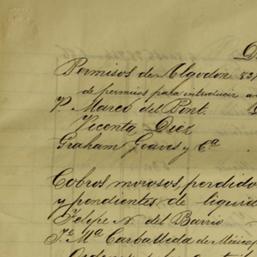 D
Permisos de Algodon
de permisos para introducir a
P. Marcó del Pont.
Vicente Diez
Graham Groves y Cª
Cobros morosos, perdido
y pendientes de liquid
Felipe N. del Barrio
Jé Mª Carballeda de